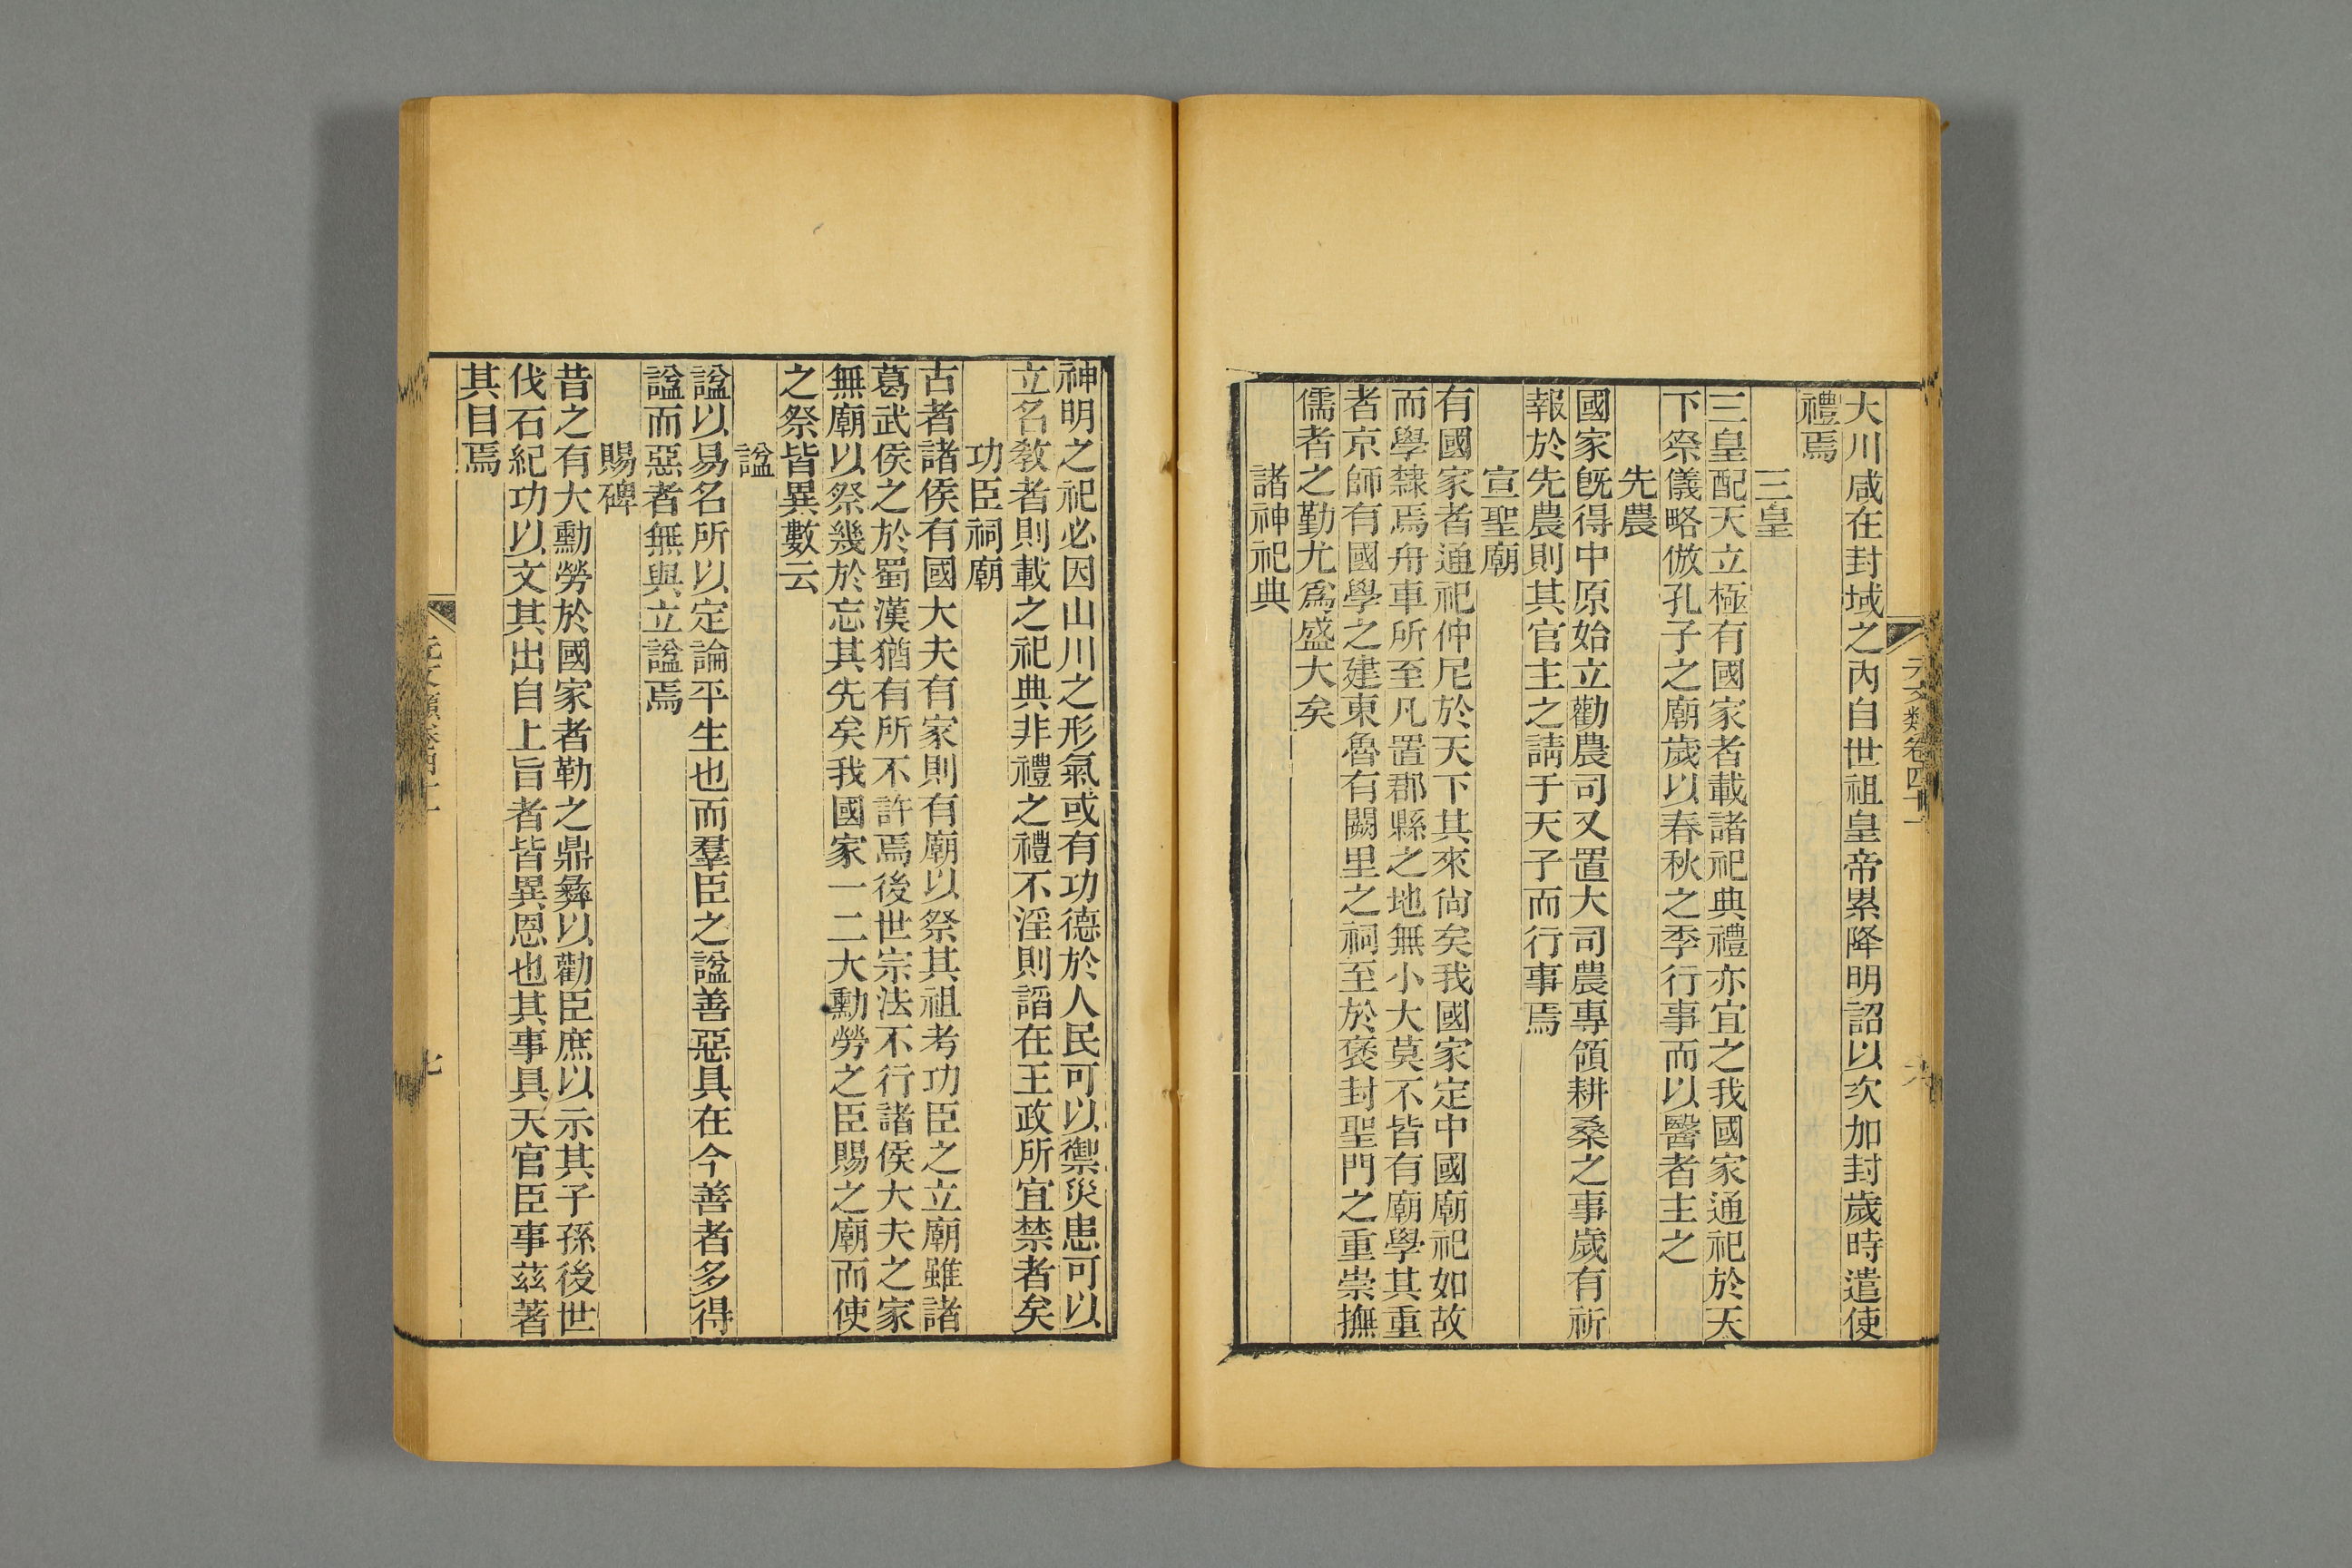 大川咸在封域之内自世祖皇帝累降明詔以次加封歲時遣使
禮焉
三皇
三皇配天立極有國家者載諸祀典禮亦宜之我國家通祀於天
下祭儀略倣孔子之廟歲以春秋之季行事而以醫者主之
先農
國家旣得中原始立勸農司又置大司農專領耕桑之事歲有祈
報於先農則其官主之請于天子而行事焉
宣聖廟
有國家者通祀仲尼於天下其來尙矣我國家定中國廟祀如故
而學隸焉舟車所至凡置郡縣之地無小大莫不皆有廟學其重
者京師有國學之建東魯有闕里之祠至於褒封聖門之重崇撫
儒者之勤尤爲盛大矣
諸神祀典
神明之祀必因山川之形氣或有功德於人民可以禦災患可以
立名敎者則載之祀典非禮之禮不淫則謟在王政所宜禁者矣
功臣祠廟
古者諸侯有國大夫有家則有廟以祭其祖考功臣之立廟雖諸
葛武侯之於蜀漢猶有所不許焉後世宗法不行諸侯大夫之家
無廟以祭幾於忘其先矣我國家一二大勳勞之臣賜之廟而使
之祭皆異數云
諡
諡以易名所以定論平生也而羣臣之諡善惡具在今善者多得
諡而惡者無與立諡焉
賜碑
昔之有大勳勞於國家者勒之鼎彝以勸臣庶以示其子孫後世
伐石紀功以文其出自上旨者皆異恩也其事具天官臣事茲著
其目焉
元文類卷四十一